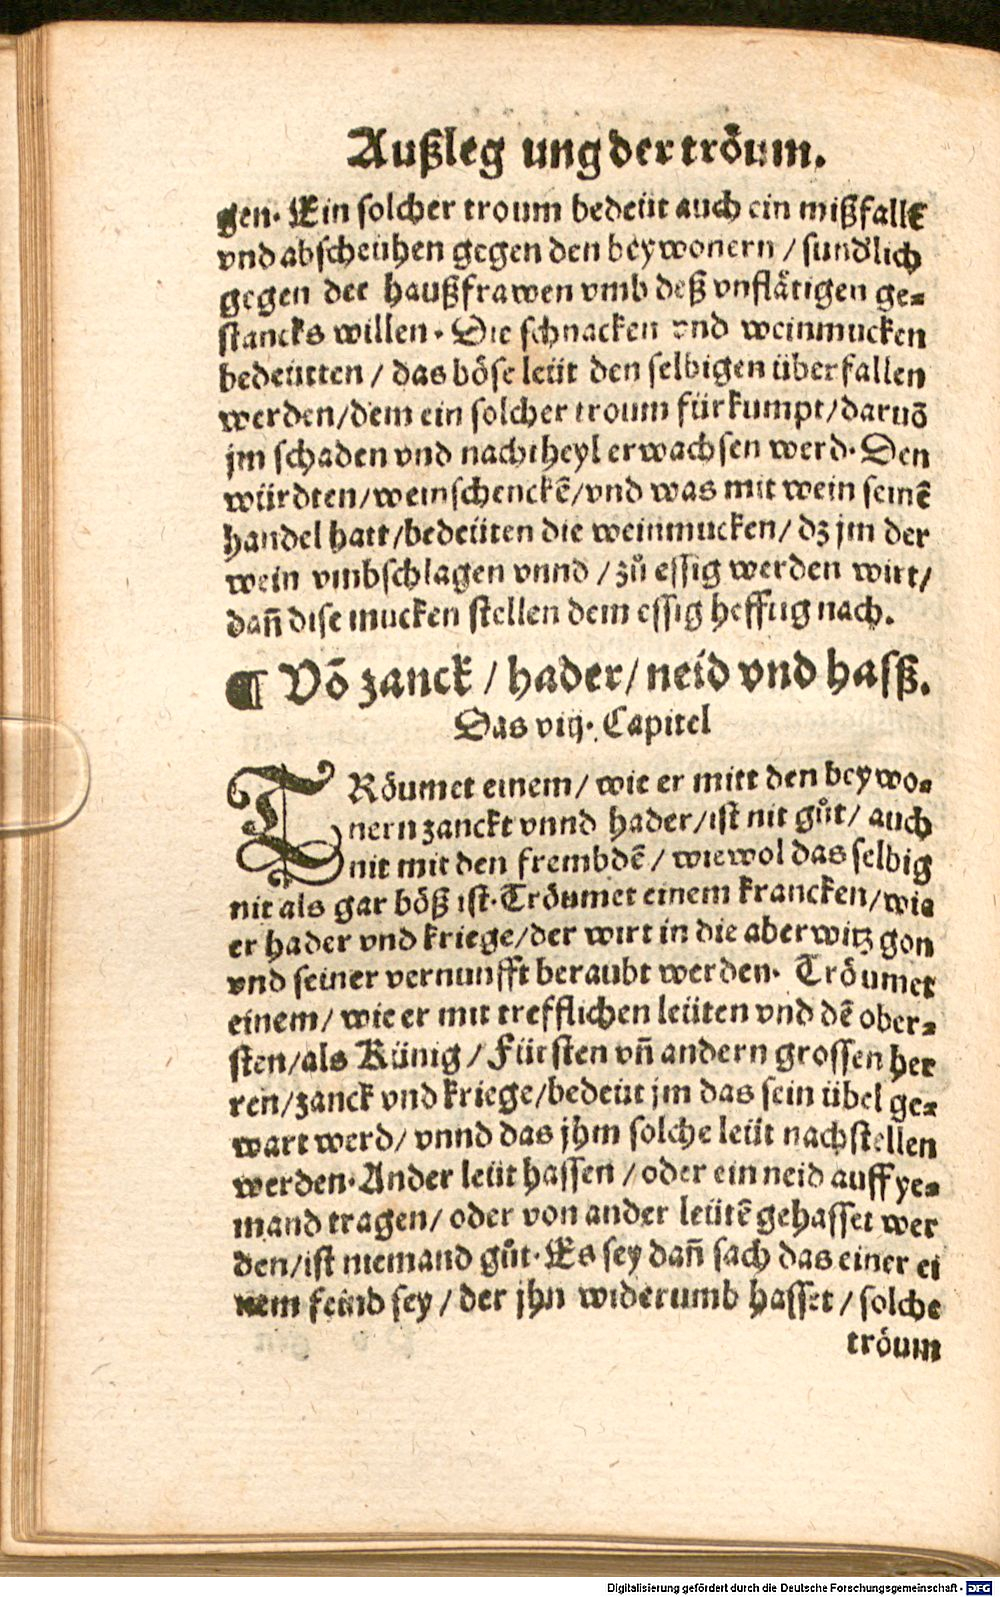 Außleg ung der tröum.
gen. Ein solcher troum bedeüt auch ein mißfallē
vnd abscheühen gegen den beywonern / sundlich
gegen der haußfrawen vmb deß vnflätigen ge-
stancks willen. Die schnacken vnd weinmucken
bedeütten / das böse leüt den selbigen überfallen
werden/dem ein solcher troum fürkumpt/daruō
jm schaden vnd nachtheyl erwachsen werd. Den
würdten/weinschenckē/vnd was mit wein seinē
handel hatt/bedeüten die weinmucken/ dz jm der
wein vmbschlagen vnnd / zů essig werden wirt/
dañ dise mucken stellen dem essig hefftig nach.
¶ Vō zanck / hader/ neid vnd hassß.
Das viij. Capitel
TRöumet einem/ wie er mitt den beywo-
nern zanckt vnnd hader/ist nit gůt/ auch
nit mit den frembdē / wiewol das selbig
nit als gar böß ist. Tröumet einem krancken/wie
er hader vnd kriege/der wirt in die aberwitz gon
vnd seiner vernunfft beraubt werden. Tröumet
einem/ wie er mit trefflichen leüten vnd dē ober-
sten/als Künig / Fürsten vñ andern grossen her
ren/zanck vnd kriege/bedeüt jm das sein übel ge-
wart werd/ vnnd das jhm solche leüt nachstellen
werden. Ander leüt hassen / oder ein neid auff ye-
mand tragen/ oder von ander leütē gehasset wer
den/ist niemand gůt. Es sey dañ sach das einer ei
nem feind sey / der jhn widerumb hasset / solche
tröum
Digitalisierung gefördert durch die Deutsche Forschungsgemeinschaft - DFG